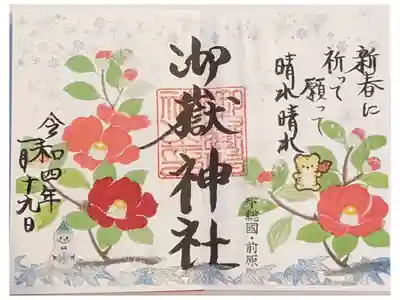 新春に
祈って
願って
晴れ晴れ
下総國・前原
御嶽神社
令和四年
一月十九日